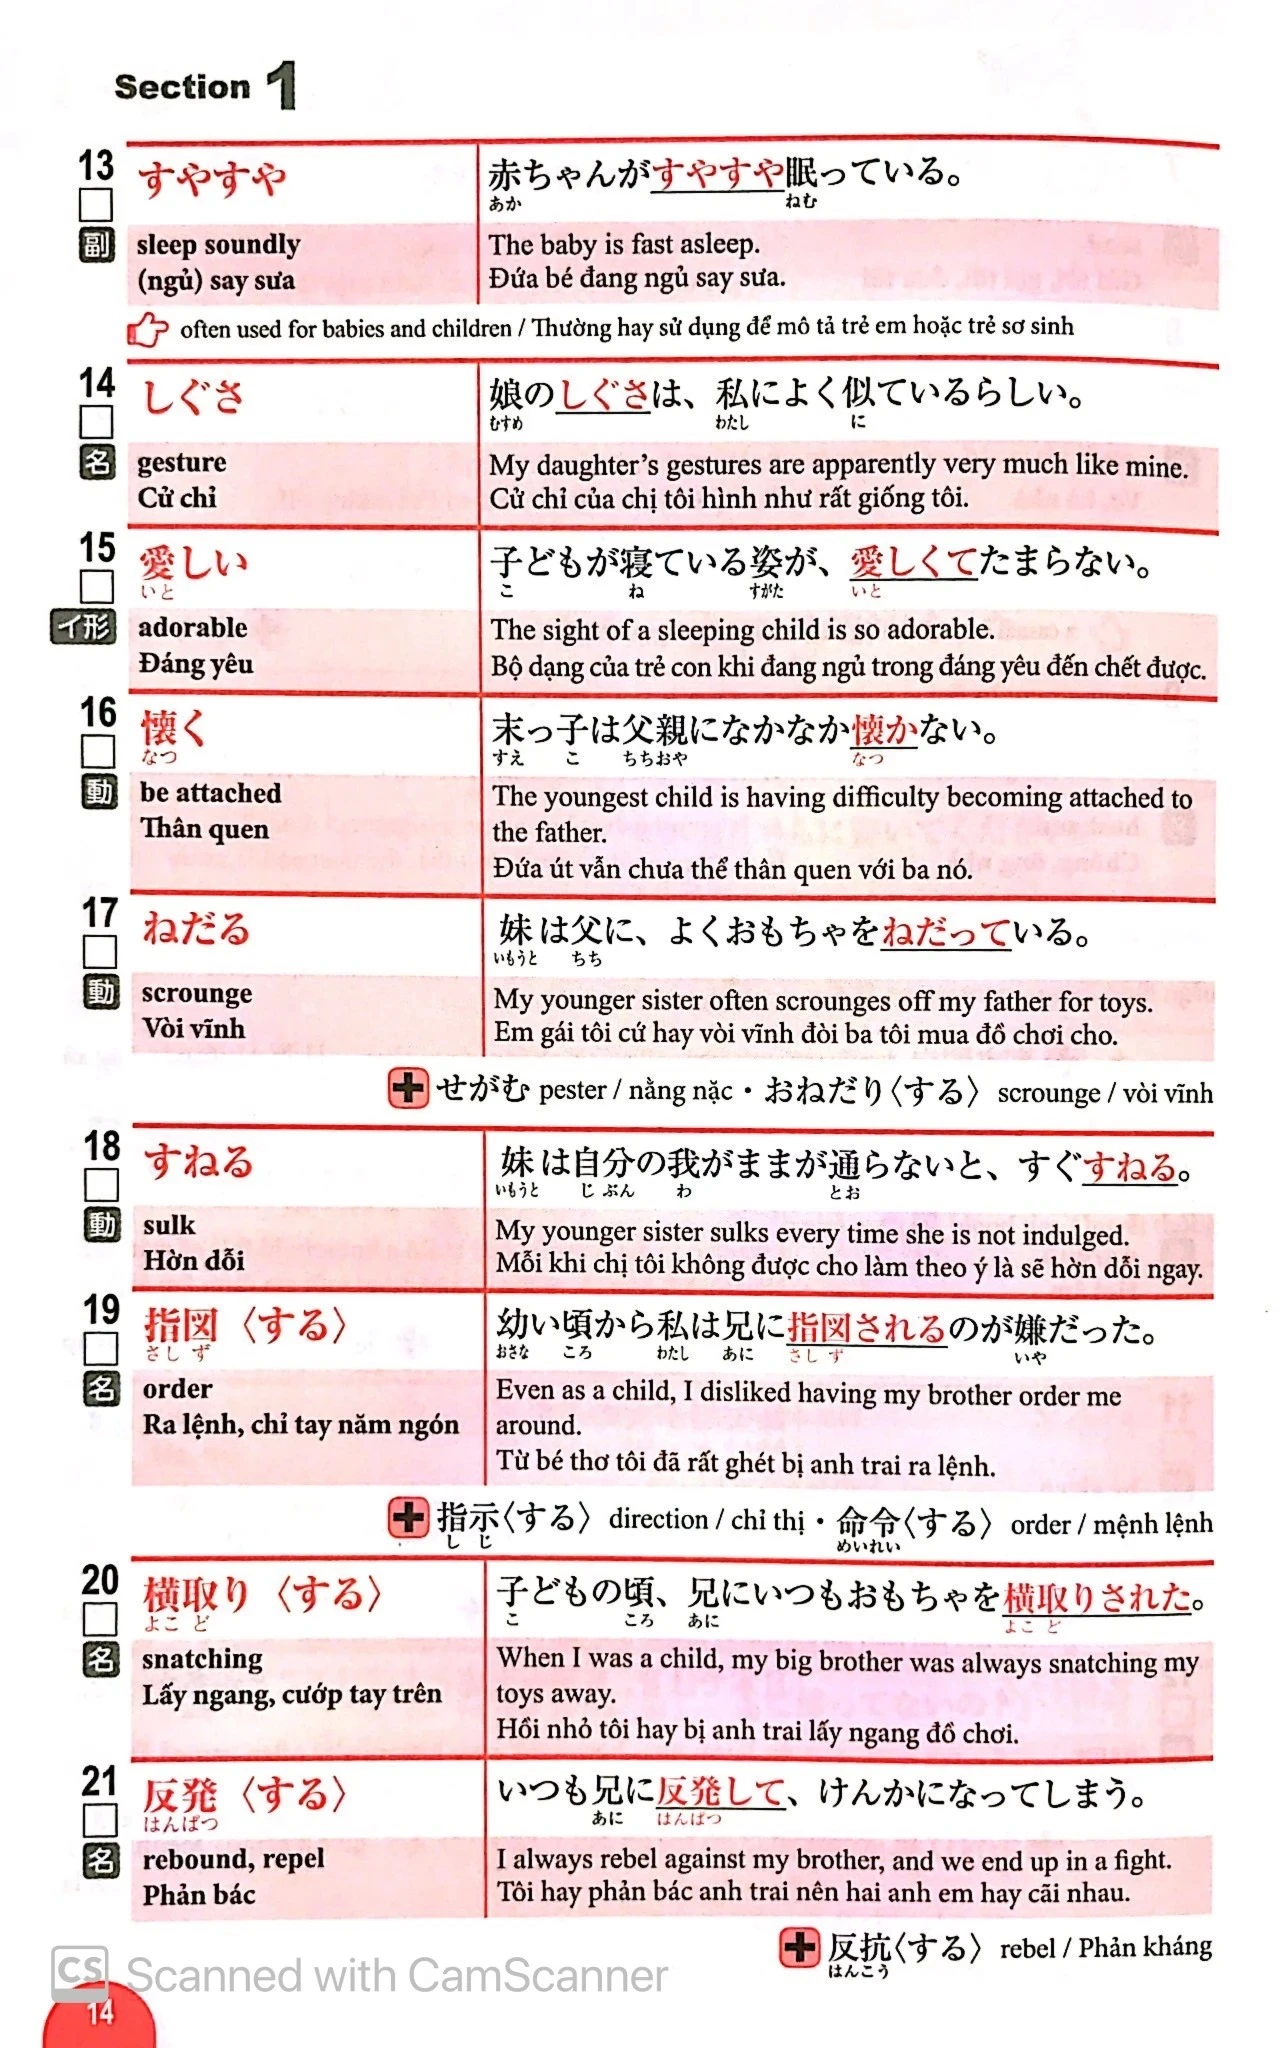 Section 1
13
すやすや
赤ちゃんがすやすや眠っている。
あか ねむ
副
sleep soundly
(ngủ) say sưa
The baby is fast asleep.
Đứa bé đang ngủ say sưa.
often used for babies and children / Thường hay sử dụng để mô tả trẻ em hoặc trẻ sơ sinh
14
しぐさ
娘のしぐさは、私によく似ているらしい。
むすめ わたし に
名
gesture
Cử chỉ
My daughter's gestures are apparently very much like mine.
Cử chỉ của chị tôi hình như rất giống tôi.
15
愛しい
いと
子どもが寝ている姿が、愛しくてたまらない。
こ ね すがた いと
イ形
adorable
Đáng yêu
The sight of a sleeping child is so adorable.
Bộ dạng của trẻ con khi đang ngủ trong đáng yêu đến chết được.
16
懐く
なつ
末っ子は父親になかなか懐かない。
すえ こ ちちおや なつ
動
be attached
Thân quen
The youngest child is having difficulty becoming attached to
the father.
Đứa út vẫn chưa thể thân quen với ba nó.
17
ねだる
妹は父に、よくおもちゃをねだっている。
いもうと ちち
動
scrounge
Vòi vĩnh
My younger sister often scrounges off my father for toys.
Em gái tôi cứ hay vòi vĩnh đòi ba tôi mua đồ chơi cho.
せがむ pester / nằng nặc・おねだり〈する〉 scrounge / vòi vĩnh
18
すねる
妹は自分の我がままが通らないと、すぐすねる。
いもうと じぶん わ とお
動
sulk
Hờn dỗi
My younger sister sulks every time she is not indulged.
Mỗi khi chị tôi không được cho làm theo ý là sẽ hờn dỗi ngay.
19
指図〈する〉
さしず
幼い頃から私は兄に指図されるのが嫌だった。
おさな ころ わたし あに さしず いや
名
order
Ra lệnh, chỉ tay năm ngón
Even as a child, I disliked having my brother order me
around.
Từ bé thơ tôi đã rất ghét bị anh trai ra lệnh.
指示〈する〉 direction / chỉ thị・命令〈する〉 order / mệnh lệnh
しじ めいれい
20
横取り〈する〉
よこど
子どもの頃、兄にいつもおもちゃを横取りされた。
こ ころ あに よこど
名
snatching
Lấy ngang, cướp tay trên
When I was a child, my big brother was always snatching my
toys away.
Hồi nhỏ tôi hay bị anh trai lấy ngang đồ chơi.
21
反発〈する〉
はんぱつ
いつも兄に反発して、けんかになってしまう。
あに はんぱつ
名
rebound, repel
Phản bác
I always rebel against my brother, and we end up in a fight.
Tôi hay phản bác anh trai nên hai anh em hay cãi nhau.
反抗〈する〉 rebel / Phản kháng
はんこう
CS Scanned with CamScanner
14